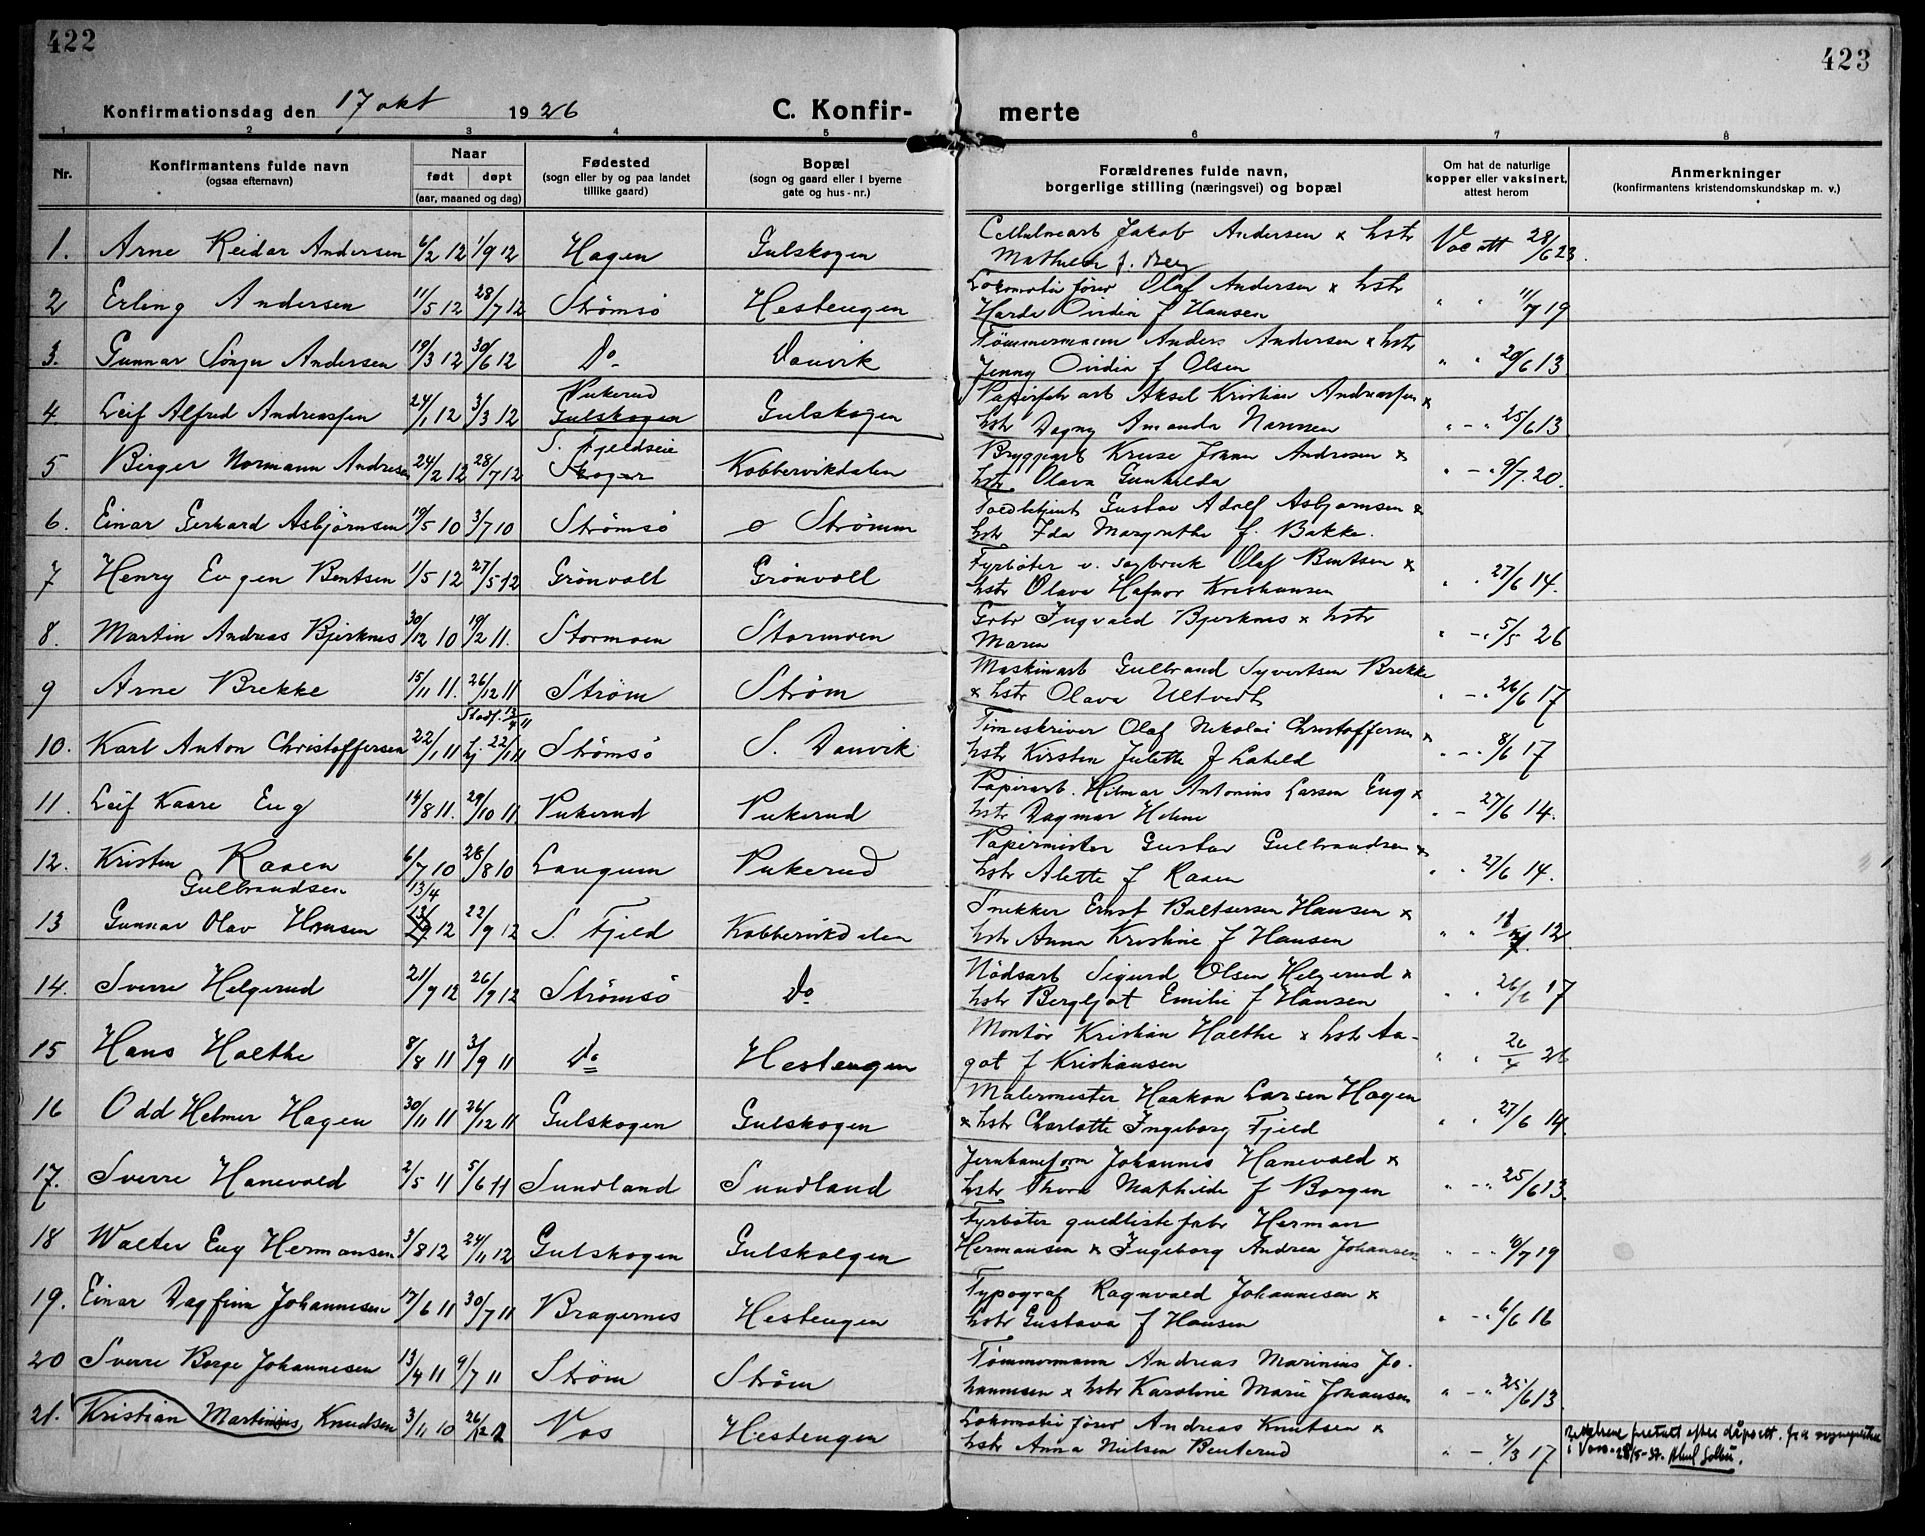 422
423
Konfirmationsdag den 17 okt 1926
C. Konfir-
merte
1 2 3 4 5 6 7 8
Nr.
Konfirmantens fulde navn
(ogsaa efternavn)
Naar
født døpt
(aar, maaned og dag)
Fødested
(sogn eller by og paa landet
tillike gaard)
Bopæl
(sogn og gaard eller i byerne
gate og hus-nr.)
Forældrenes fulde navn,
borgerlige stilling (næringsvei) og bopæl
Om hat de naturlige
kopper eller vaksinert,
attest herom
Anmerkninger
(konfirmantens kristendomskundskap m. v.)
1. Arne Reidar Andersen 6/2 12 1/9 12 Hagen Gulskogen
Cellulosearb Jakob Andersen x hstr
Mathilde f. Berg
Vac att 28/6 23.
2 Erling Andersen 11/5 12 28/7 12 Strømsö Hestengen
Lokomotivfører Olaf Andersen x hstr
Harda Ovidia f Hansen
" " 11/7 19
3. Gunnar Sönju Andersen 19/3 12 30/6 12 Do Danvik
Tømmermann Anders Andersen x hstr
Jenny Ovidia f Olsen
" " 20/6 13
4. Leif Alfred Andreassen 24/1 12 3/3 12 Pukerud
Gulskogen Gulskogen
Papirfabr arb Aksel Kristian Andreassen x
hstr Dagny Amanda Nannsen
" - " 25/6 13
5 Birger Normann Andresen 24/2 12 28/7 12 S. Fjeldseie
Skoger Kobbervikdalen
Bryggearb Kruse Johan Andresen x
hstr Olava Gunhilda
" - " 9/7. 20.
6. Einar Gerhard Asbjörnsen 19/5 10 3/7 10 Strömsö o Strömm
Toldbetjent Gustav Adolf Asbjørnsen x
hstr Ida Margrethe f. Bakke.
7 Henry Eugen Bentsen 1/5 12 27/5 12 Grönvoll Grönvoll
Fyrböter v. sagbruk Olaf Bentsen x
hstr Olava Hafnor Kristiansen
" . 27/6 14.
8. Martin Andreas Bjerknes 30/12 10 19/2 11. Stormoen Stormoen
Grbr Ingvald Bjerknes x hstr
Maren
" - " 5/5 26
9 Arne Brekke 15/11 11. 26/12 11 Ström Ström
Maskinarb Gulbrand Syvertsen Brekke
x hstr Olava Ultvedt
" - " 26/6 17
10. Karl Anton Christoffersen 22/1 11 Stadf. 13/4 11
hj. 22/1 11 Strömsö S. Danvik
Timeskriver Olaf Nikolai Christoffersen x
hstr Kirsten Julette f Lahild
" - " 8/6 17
11. Leif Kaare Eng 14/8 11. 29/10 11 Pukerud Pukerud
Papirarb. Hilmar Antonius Larsen Eng x
hstr Dagmar Helene
" - 27/6 14.
12. Kristen Raaen
Gulbrandsen 6/7 10 28/8 10 Laugum Pukerud
Papirmester Gustav Gulbrandsen x
hstr Alette f Raaen
" " 27/6 14.
13 Gunnar Olav Hansen 13/4 12 22/9 12 S. Fjeld Kobbervikdalen
Snekker Ernst Baltsersen Hansen x
hstr Anna Kristine f Hansen
" " 12.
14. Sverre Helgerud 21/9 12 26/9 12 Strömsö Do
Nödsarb Sigurd Olsen Helgerud x
hstr Bergljot Emilie f Hansen
" . 26/6 17
15 Hans Holthe 8/8 11 3/9 11 Do Hestengen
Montör Kristian Holthe x hstr Aa-
got f Kristiansen
" " 26/4 26
16 Odd Helmer Hagen 30/11 11 26/12 11 Gulskogen Gulskogen
Malermester Haakon Larsen Hagen
x hstr Charlotte Ingeborg Fjeld
" . 27/6 14.
17. Sverre Hanevold 2/5 11 5/6 11 Sundland Sundland
Jernbaneform Johannes Hanevold x
hstr Thora Mathilde f Borgen
" - " 25/6 13.
18 Walter Eug Hermansen 3/8 12 24/11 12 Gulskogen Gulskolgen
Fyrböter guldlistefabr Herman
Hermansen x Ingeborg Andrea Johansen
" - " 6/7 19
19. Einar Dagfinn Johannesen 17/6 11 30/7 11 Bragernes Hestengen
Typograf Ragnvald Johannesen x
hstr Gustava f Hansen
" - " 6/6 16
20 Sverre Borge Johannesen 13/4 11 9/7 11 Ström Ström
Tömmermann Andreas Marinius Jo-
hannesen x hstr Karoline Marie Johansen
" - " 25/6 13.
21. Kristian Martinius Knudsen 3/11 10 26/12 Vos Hestengen
Lokomotivfører Andreas Knutsen x
hstr Anna Nielsen Benterud
" - 7/3 17
Rettelsene foretatt efter dåpsatt. fra sogneprestene
i Voss. 28/5-37.